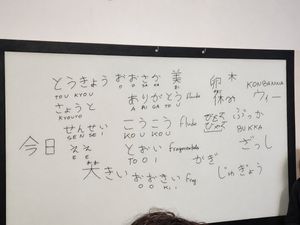 とうきょう おおさか 美 卵 木 KONBANWA
TOU KYOU O O SA KA
きょうと ありがとう 休み ウィー
KYOUTO A RI GA TOU
せんせい こうこう ぶっか
SEN SEI KOU KOU BUKKA
今日 ええ とおい Fragmentado ざっし
E E TO O I かぎ
大きい おおきい Frag じゅぎょう
O O KI I